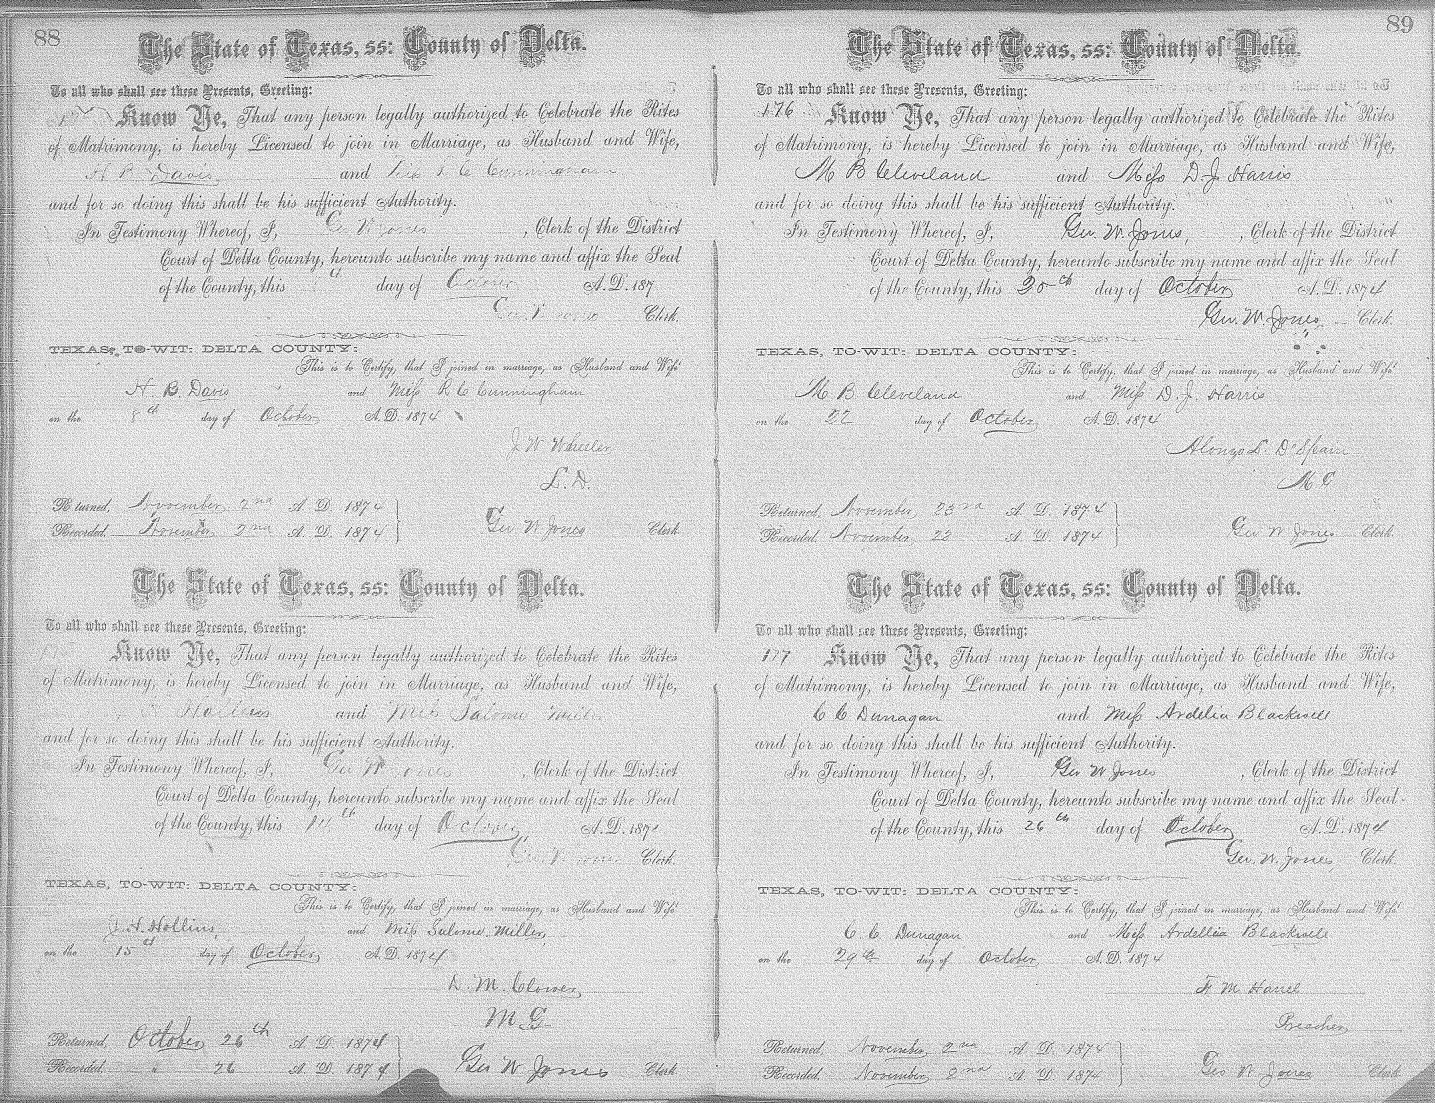 88
The State of Texas, ss: County of Delta.
To all who shall see these Presents, Greeting:
Know Ye, That any person legally authorized to Celebrate the Rites
of Matrimony, is hereby Licensed to join in Marriage, as Husband and Wife,
H B Davis and Miss R C Cunningham
and for so doing this shall be his sufficient Authority.
In Testimony Whereof, I, Geo W Jones , Clerk of the District
Court of Delta County, hereunto subscribe my name and affix the Seal
of the County, this day of October A.D. 187
Geo W Jones Clerk.
TEXAS, TO-WIT: DELTA COUNTY:
This is to Certify, that I joined in marriage, as Husband and Wife
H B Davis and Miss R C Cunningham
on the 8th day of October A.D. 1874
J W Wheeler
L. D.
Returned, November 2nd A. D. 1874
Recorded, November 2nd A. D. 1874 Geo W Jones Clerk
The State of Texas, ss: County of Delta.
To all who shall see these Presents, Greeting:
Know Ye, That any person legally authorized to Celebrate the Rites
of Matrimony, is hereby Licensed to join in Marriage, as Husband and Wife,
Hollins and Miss Salome Miller
and for so doing this shall be his sufficient Authority.
In Testimony Whereof, I, Geo W Jones , Clerk of the District
Court of Delta County, hereunto subscribe my name and affix the Seal
of the County, this 14th day of October A.D. 187
Geo W Jones Clerk.
TEXAS, TO-WIT: DELTA COUNTY:
This is to Certify, that I joined in marriage, as Husband and Wife
J. H. Hollins, and Miss Salome Miller,
on the 15th day of October, A.D. 1874
D. M. Clower,
M. G.
Returned, October 26th A. D. 1874
Recorded, " 26 A. D. 1874 Geo W Jones Clerk
89
The State of Texas, ss: County of Delta.
To all who shall see these Presents, Greeting:
176 Know Ye, That any person legally authorized to Celebrate the Rites
of Matrimony, is hereby Licensed to join in Marriage, as Husband and Wife,
M B Cleveland and Miss D. J. Harris
and for so doing this shall be his sufficient Authority.
In Testimony Whereof, I, Geo. W. Jones, , Clerk of the District
Court of Delta County, hereunto subscribe my name and affix the Seal
of the County, this 20th day of October A.D. 1874
Geo. W. Jones, Clerk.
TEXAS, TO-WIT: DELTA COUNTY:
This is to Certify, that I joined in marriage, as Husband and Wife
M B Cleveland and Miss D. J. Harris
on the 22 day of October, A.D. 1874
Alonzo L. D'Spain
M C
Returned, November, 23rd A. D. 1874
Recorded, November, 23 A. D. 1874 Geo W Jones Clerk.
The State of Texas, ss: County of Delta.
To all who shall see these Presents, Greeting:
177 Know Ye, That any person legally authorized to Celebrate the Rites
of Matrimony, is hereby Licensed to join in Marriage, as Husband and Wife,
C C Dunagan and Miss Ardelia Blackwell
and for so doing this shall be his sufficient Authority.
In Testimony Whereof, I, Geo W Jones , Clerk of the District
Court of Delta County, hereunto subscribe my name and affix the Seal
of the County, this 26th day of October A.D. 1874
Geo. W. Jones Clerk.
TEXAS, TO-WIT: DELTA COUNTY:
This is to Certify, that I joined in marriage, as Husband and Wife
C. C. Dunagan and Miss Ardellia Blackwell
on the 29th day of October, A.D. 1874
F. M. Harrel
Preacher,
Returned, November, 2nd A. D. 1874
Recorded, November, 2nd A. D. 1874 Geo W Jones Clerk